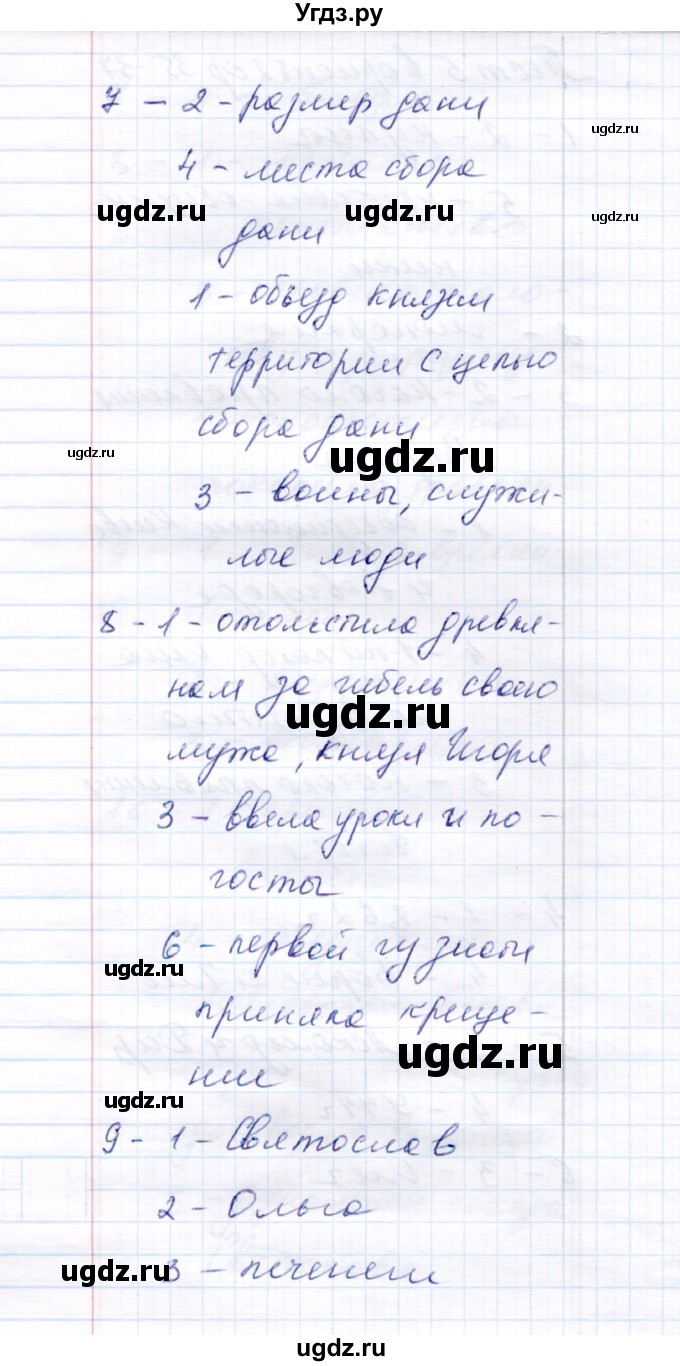 Угдз.ру
7 – 2 - размер дани
ugdz.ru
4 - места сбора
ugdz.ru ugdz.ru ugdz.ru
дани
1 - объезд князем
территории с целью
сбора дани
ugdz.ru ugdz.ru
3 – воины, служи-
лые люди
8 - 1 - отомстила древля-
нам за гибель своего
ugdz.ru
мужа, князя Игоря
3 – ввела уроки и по-
госты
6 - первой из знати
ugdz.ru
приняла креще-
ugdz.ru
ние
ugdz.ru
9 - 1 - Святослав
2 - Ольга
ugdz.ru
3 – печенеги
ugdz.ru